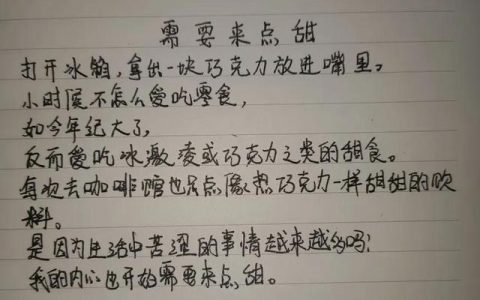 需要来点甜
打开冰箱，拿出一块巧克力放进嘴里。
小时候不怎么爱吃零食，
如今年纪大了，
反而爱吃冰激凌或巧克力之类的甜食。
每次去咖啡馆也只点像热巧克力一样甜甜的饮
料。
是因为生活中苦涩的事情越来越多吗？
我的内心也开始需要来点甜。